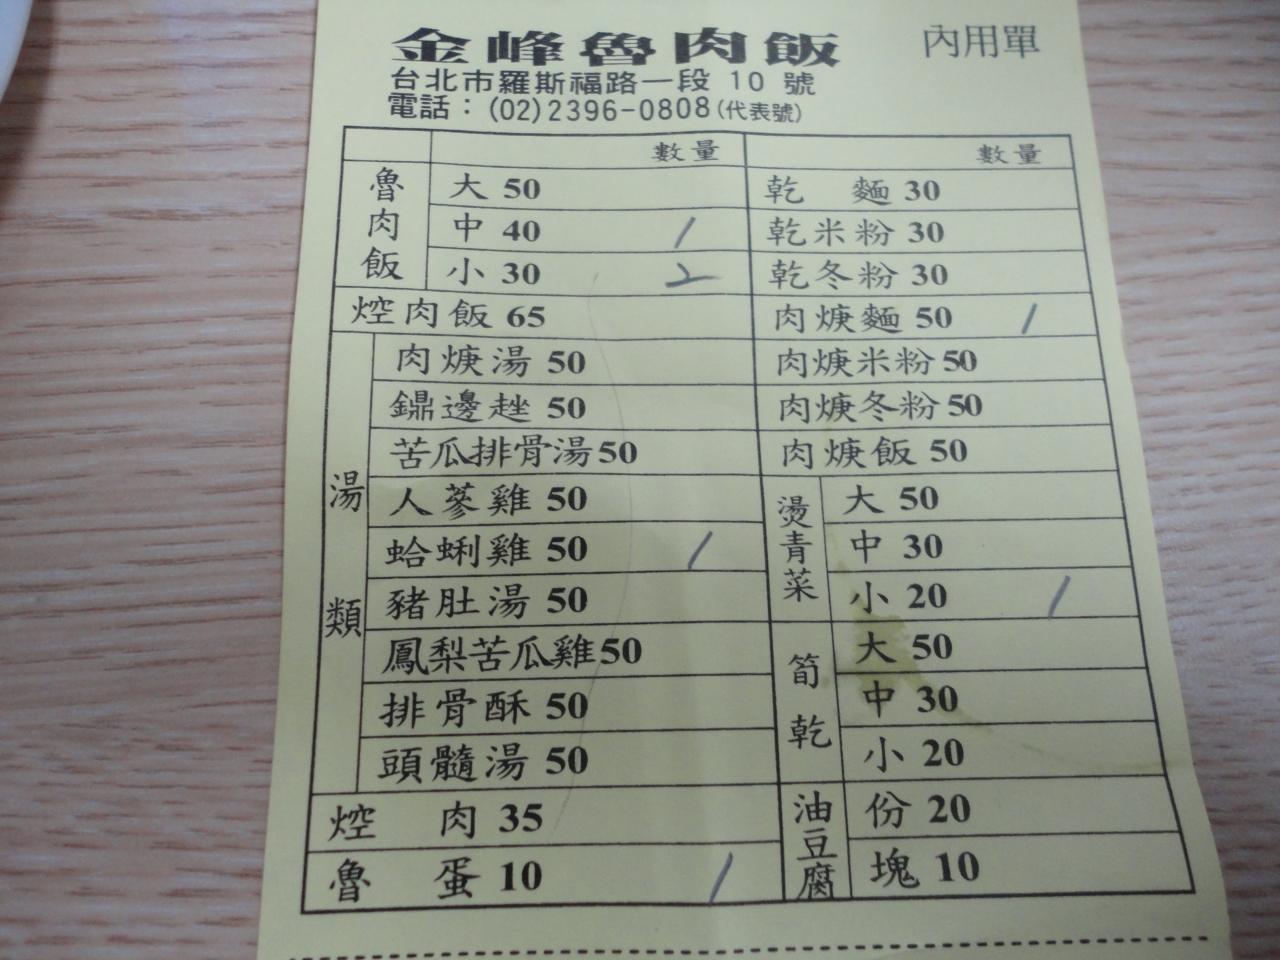 金峰魯肉飯 內用單
台北市羅斯福路一段 10 號
電話：(02)2396-0808(代表號)
數量 數量
魯肉飯 大 50 乾 麵 30
中 40 1 乾米粉 30
小 30 2 乾冬粉 30
焢肉飯 65 肉焿麵 50 1
湯類 肉焿湯 50 肉焿米粉 50
鐤邊趖 50 肉焿冬粉 50
苦瓜排骨湯 50 肉焿飯 50
人蔘雞 50 燙青菜 大 50
蛤蜊雞 50 1 中 30
豬肚湯 50 小 20 1
鳳梨苦瓜雞 50 筍乾 大 50
排骨酥 50 中 30
頭髓湯 50 小 20
焢 肉 35 油豆腐 份 20
魯 蛋 10 1 塊 10